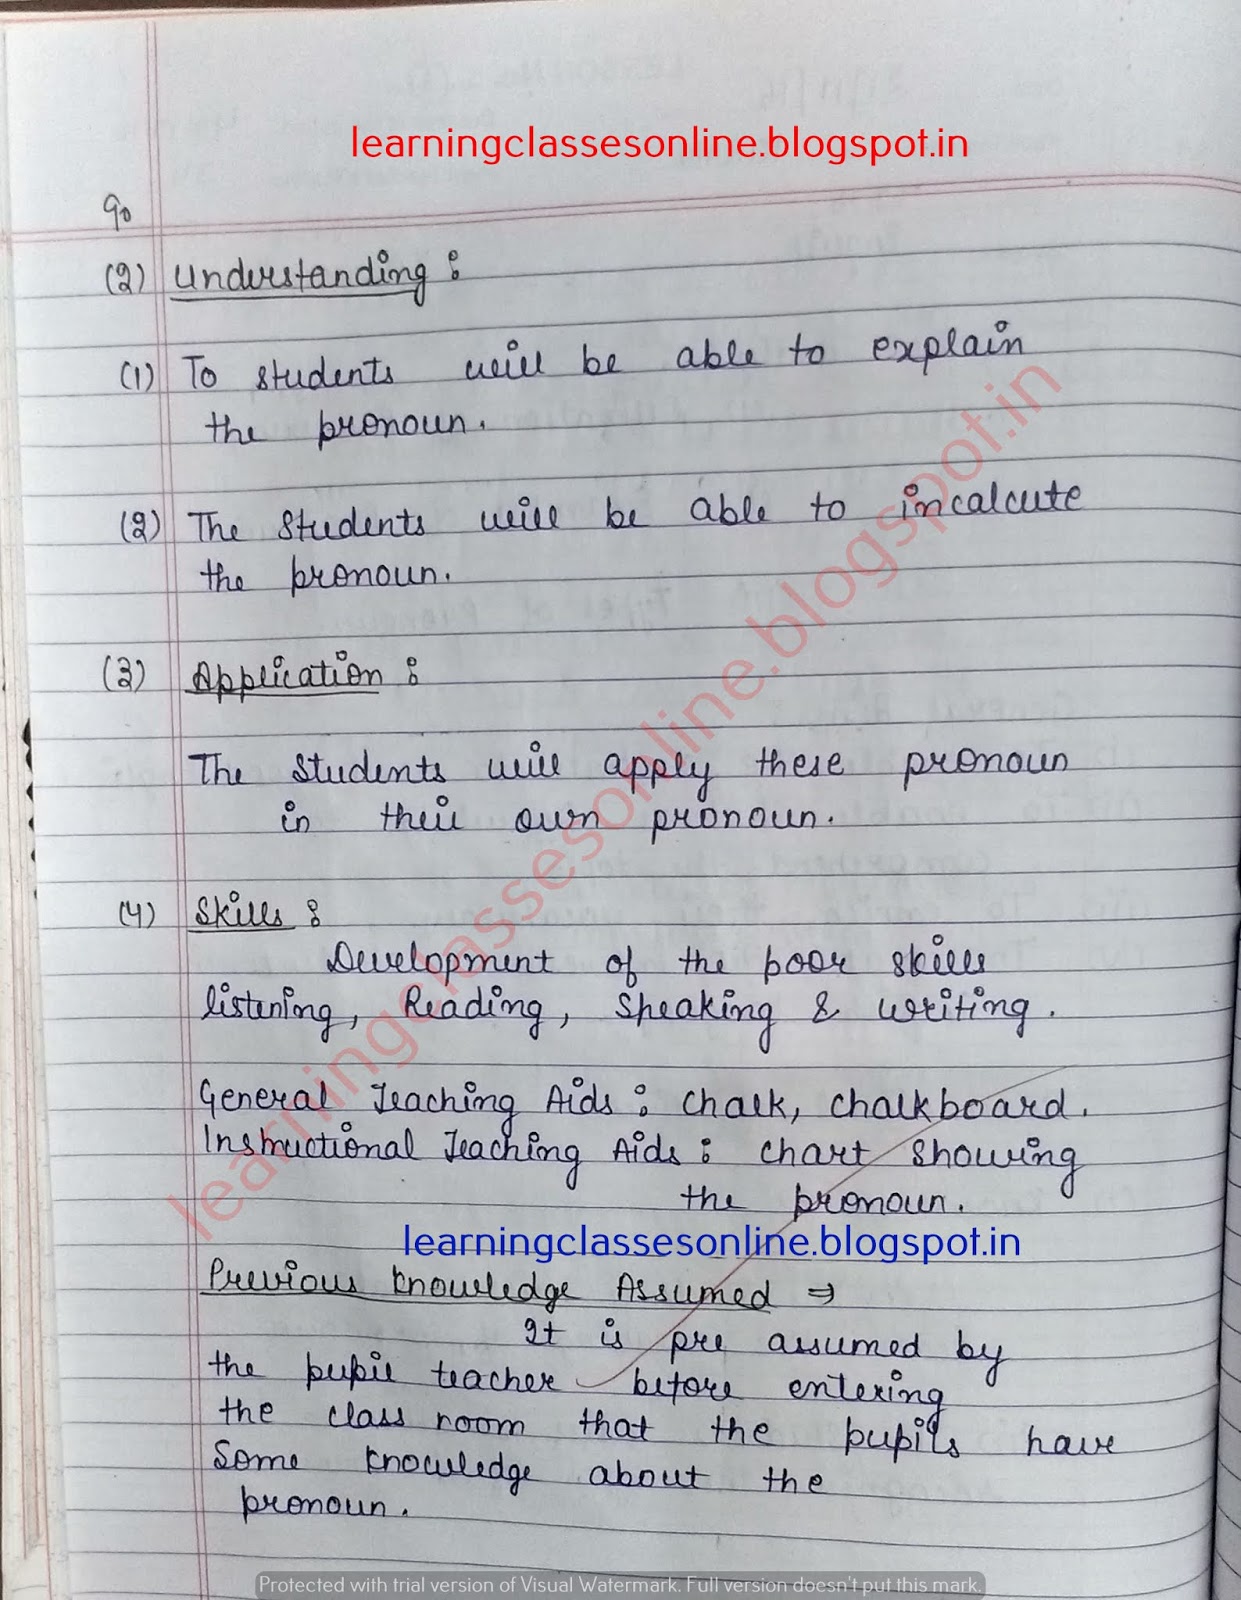 learningclassesonline.blogspot.in
90
(2) Understanding :
(1) To students will be able to explain
the pronoun.
(2) The students will be able to incalcute
the pronoun.
(3) Application :
The students will apply these pronoun
in their own pronoun.
(4) Skills :
Development of the poor skills
listening, Reading, Speaking & writing.
General Teaching Aids : Chalk, chalkboard.
Instructional Teaching Aids : chart showing
the pronoun.
learningclassesonline.blogspot.in
Previous knowledge Assumed ⇒
It is pre assumed by
the pupil teacher before entering
the class room that the pupils have
some knowledge about the
pronoun.
learningclassesonline.blogspot.in
Protected with trial version of Visual Watermark. Full version doesn't put this mark.